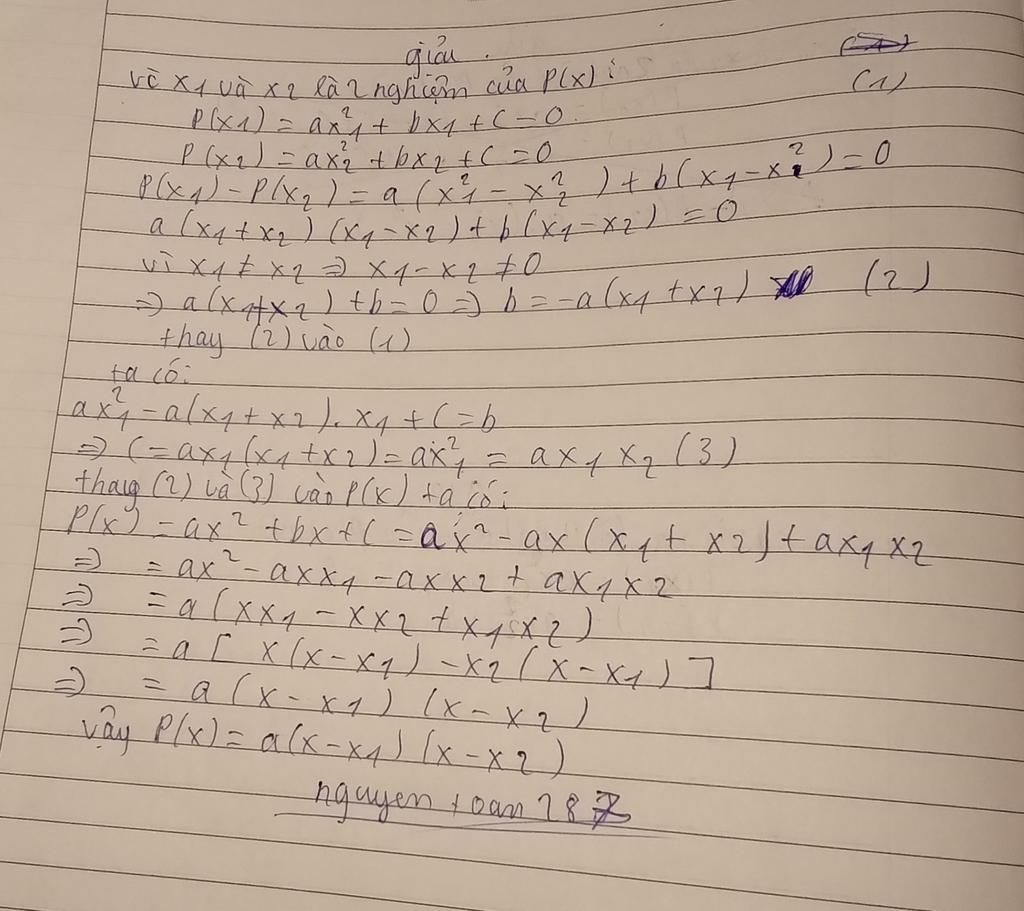 giải.
vì x1 và x2 là 2 nghiệm của P(x): (1)
P(x1) = ax1² + bx1 + c = 0
P(x2) = ax2² + bx2 + c = 0
P(x1) - P(x2) = a(x1² - x2²) + b(x1 - x2²) = 0
a(x1 + x2)(x1 - x2) + b(x1 - x2) = 0
vì x1 ≠ x2 => x1 - x2 ≠ 0
=> a(x1 + x2) + b = 0 => b = -a(x1 + x2) (2)
thay (2) vào (1)
ta có:
ax1² - a(x1 + x2). x1 + c = b
=> c = ax1(x1 + x2) = ax1² = ax1x2 (3)
thay (2) và (3) vào P(x) ta có:
P(x) = ax² + bx + c = ax² - ax(x1 + x2) + ax1x2
=> = ax² - axx1 - axx2 + ax1x2
=> = a(xx1 - xx2 + x1x2)
=> = a[x(x - x1) - x2(x - x1)]
=> = a(x - x1)(x - x2)
vậy P(x) = a(x - x1)(x - x2)
nguyen toan 287